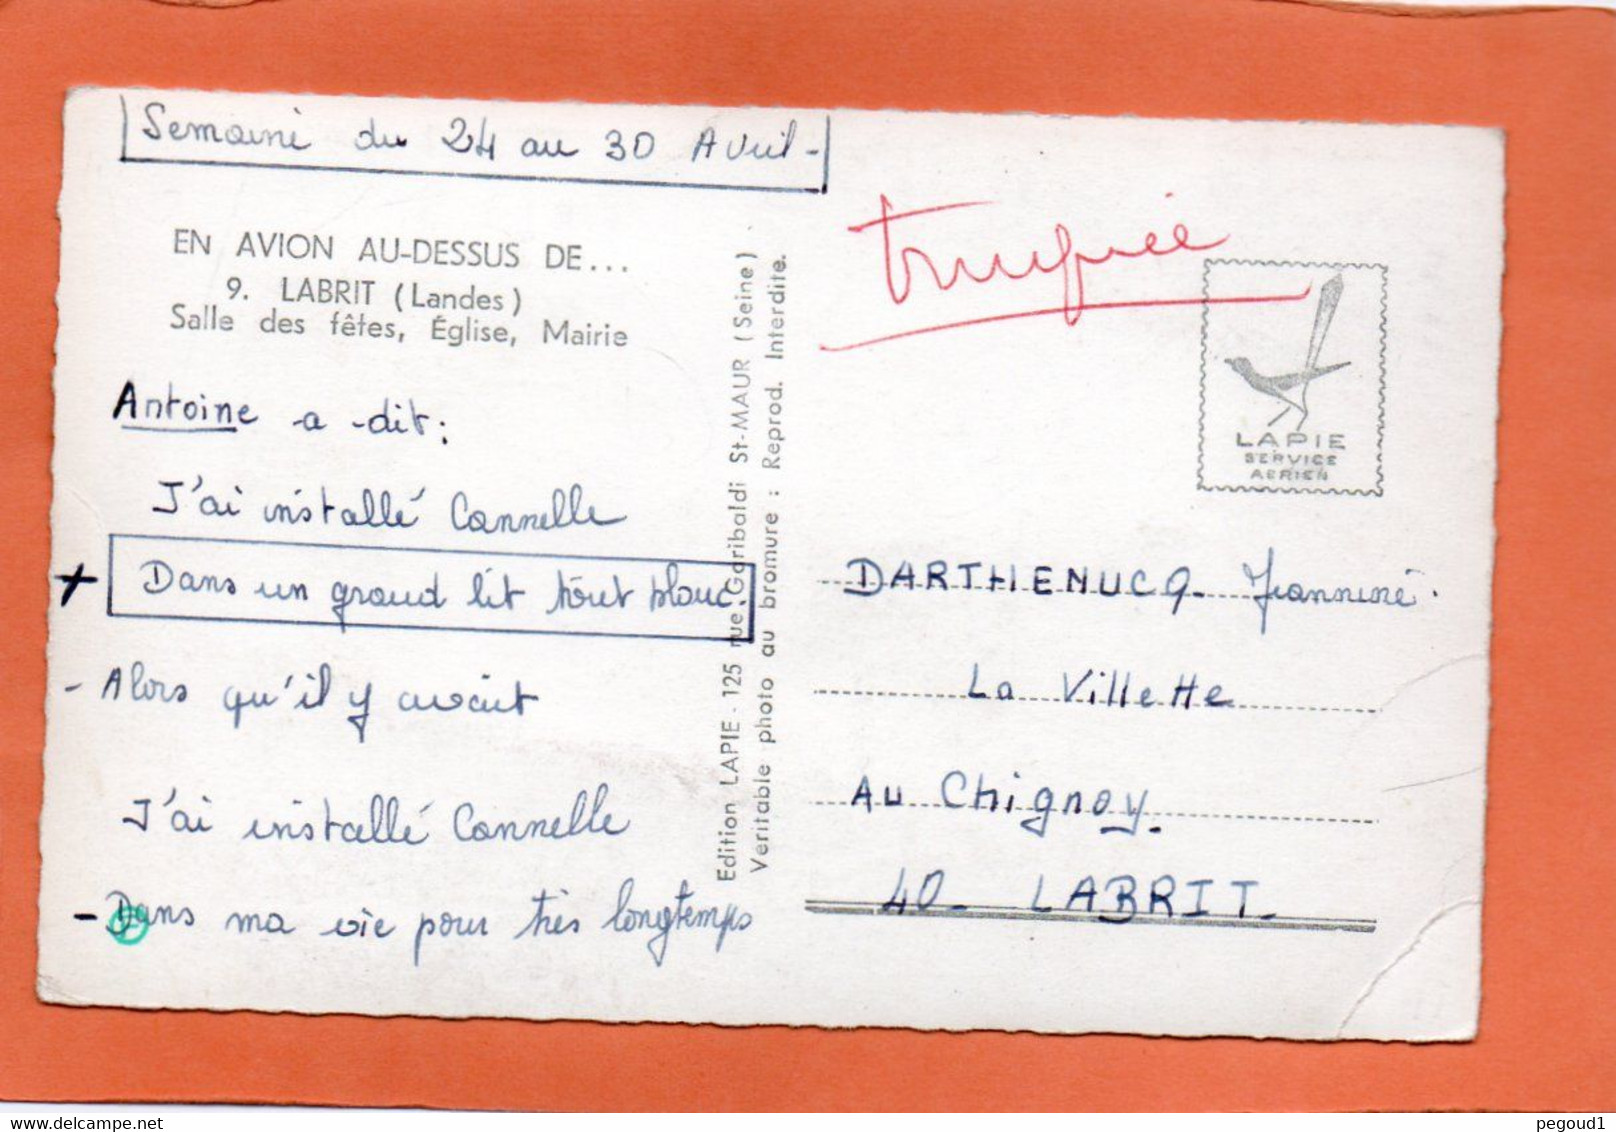 Semaine du 24 au 30 Avril -
EN AVION AU-DESSUS DE...
9. LABRIT (Landes)
Salle des fêtes, Église, Mairie
Antoine a dit :
J'ai installé Cannelle
+ Dans un grand lit tout blanc.
- Alors qu'il y avait
J'ai installé Cannelle
- Dans ma vie pour très longtemps
Edition LAPIE - 125 rue Garibaldi St-MAUR (Seine)
Veritable photo au bromure : Reprod. Interdite.
LAPIE
SERVICE
AERIEN
DARTHENUCQ - Jeannine.
La Villette
Au Chignoy.
40 - LABRIT -
pegoud1